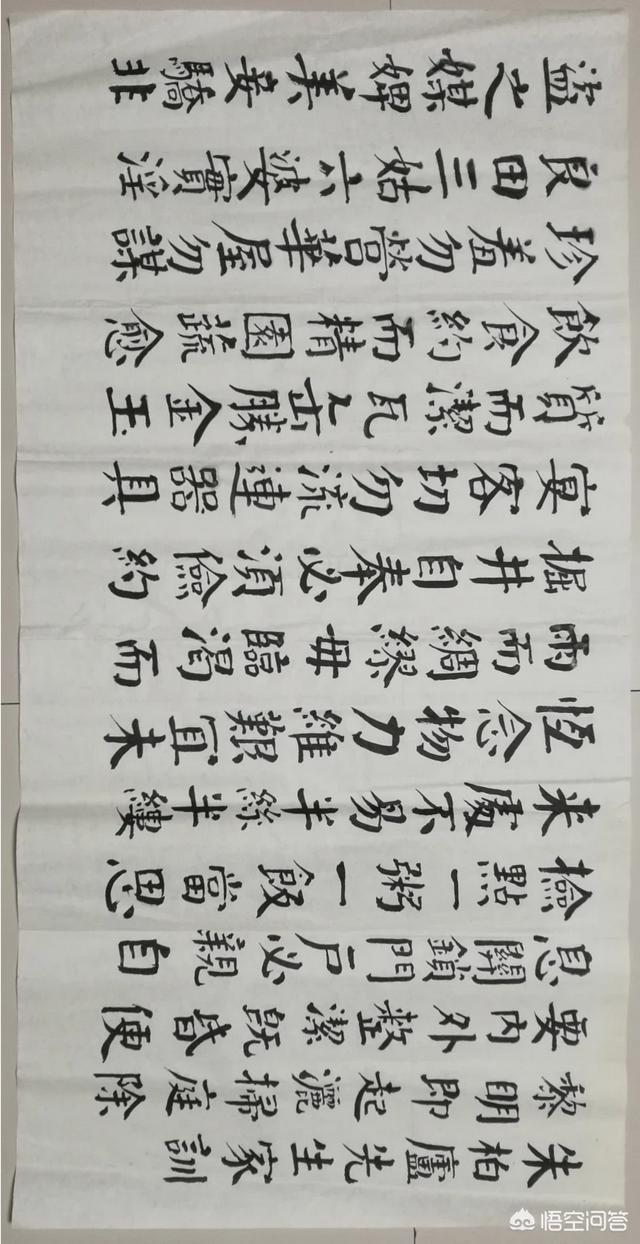 朱柏廬先生家訓
黎明即起灑掃庭除
要内外整潔既昏便
息關鎖門户必親自
檢點一粥一飯當思
来處不易半絲半縷
恆念物力維艱宜未
雨而綢繆毋臨渴而
掘井自奉必須儉約
宴客切勿流連器具
質而潔瓦缶勝金玉
飲食約而精園蔬愈
珍羞勿營華屋勿謀
良田三姑六婆實淫
盗之媒婢美妾驕非
悟空问答